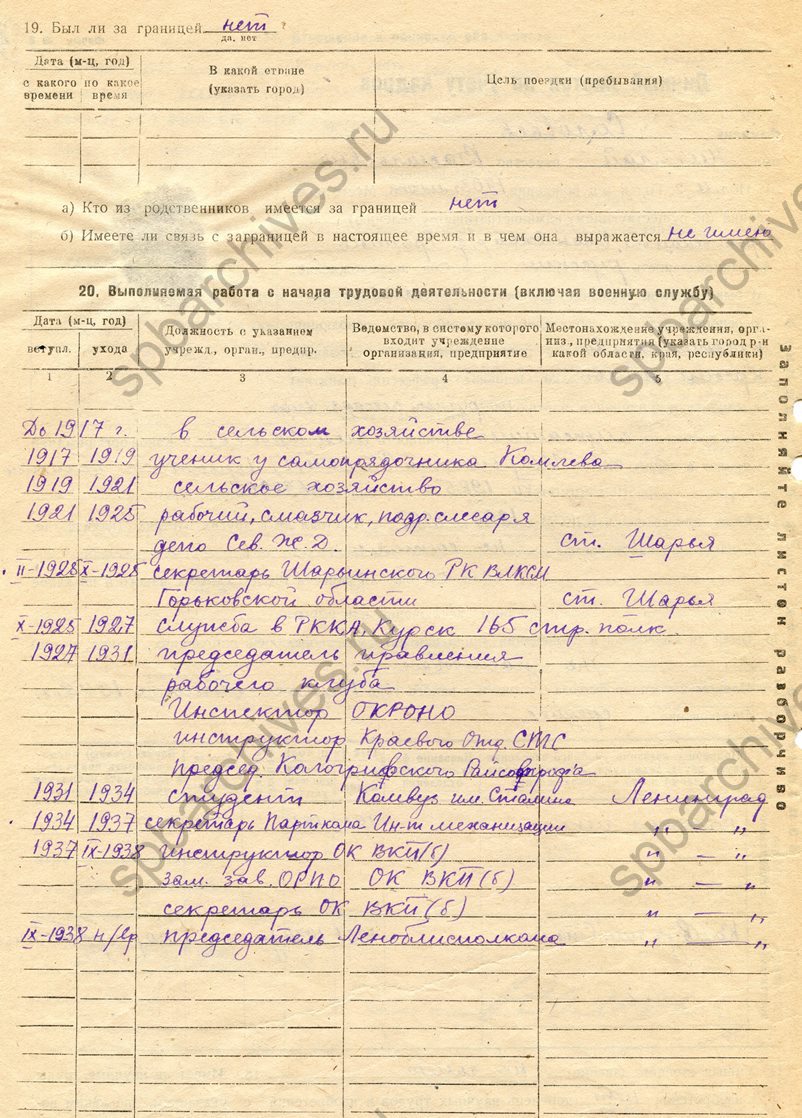 19. Был ли за границей нет ?
да, нет
Дата (м-ц, год)
с какого времени
по какое время
В какой стране (указать город)
Цель поездки (пребывания)
а) Кто из родственников имеется за границей нет
б) Имеете ли связь с заграницей в настоящее время и в чем она выражается не имею
20. Выполняемая работа с начала трудовой деятельности (включая военную службу)
Дата (м-ц, год)
вступл.
ухода
Должность с указанием учрежд., орган., предпр.
Ведомство, в систему которого входит учреждение организация, предприятие
Местонахождение учреждения, орга- низ., предприятия (указать город р-н какой области, края, республики)
1 2 3 4 5
До 1917 г. в сельском хозяйстве
1917 1919 ученик у самопрядочника Комлева
1919 1921 сельское хозяйство
1921 1925 рабочий, смазчик, подр. слесаря
депо Сев. Ж.Д. ст. Шарья
II-1925 X-1925 секретарь Шарьинского РК ВЛКСМ
Горьковской области ст. Шарья
X-1925 1927 служба в РККА Курск 165 стр. полк
1927 1931 председатель правления
рабочего клуба
Инспектор ОКРОНО
инструктор Краевого Отд. СТС
председ. Кологривского
1931 1934 студент Комвуз им. Сталина Ленинград
1934 1937 секретарь Парткома Ин-т механизации „ — „
1937 IX-1938 инструктор ОК ВКП(б) „ — „
зам. зав. ОРПО ОК ВКП(б) „ — „
секретарь ОК ВКП(б) „ — „
IX-1938 н/вр председатель Леноблисполкома „ — „
заполняйте листок разборчиво
spbarchives.ru
spbarchives.ru
spbarchives.ru
spbarchives.ru